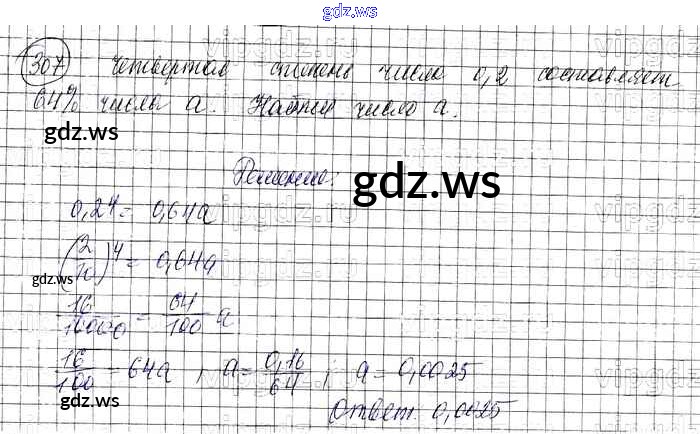 gdz.ws
307 Четвертая степень числа 0,2 составляет
64% числа a. Найти число a.
gdz.ws
Решение:
gdz.ws
0,2⁴ = 0,64a
(2/10)⁴ = 0,64a
gdz.ws
16/10000 = 64/100 a
16/100 = 64a, a = 0,16/64; a = 0,0025
gdz.ws
Ответ 0,0025
gdz.ws